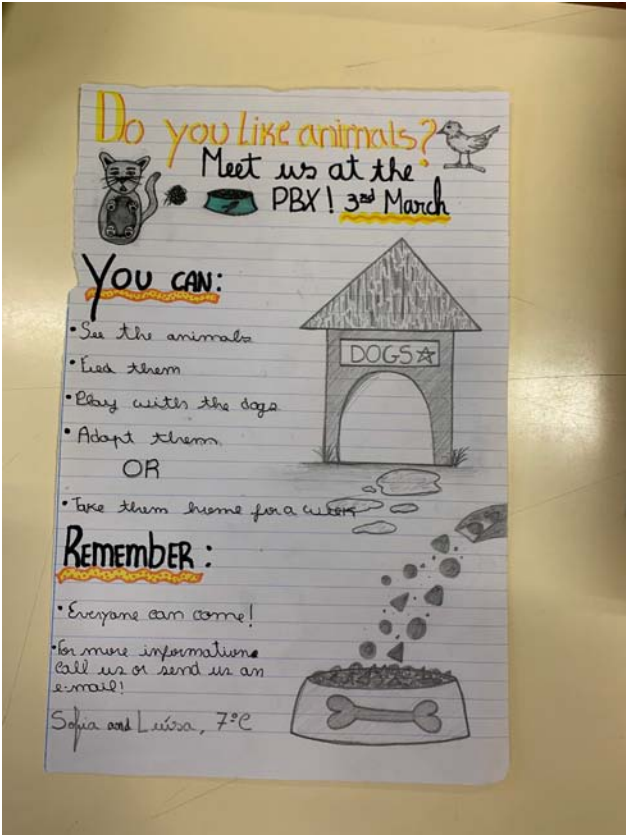 Do you like animals?
Meet us at the
PBX! 3nd March
You can:
• See the animals
• Feed them
• Play with the dogs
• Adopt them
OR
• Take them home for a week
DOGS
Remember:
• Everyone can come!
• For more informations
call us or send us an
e-mail!
Sofia and Luísa, 7ºC